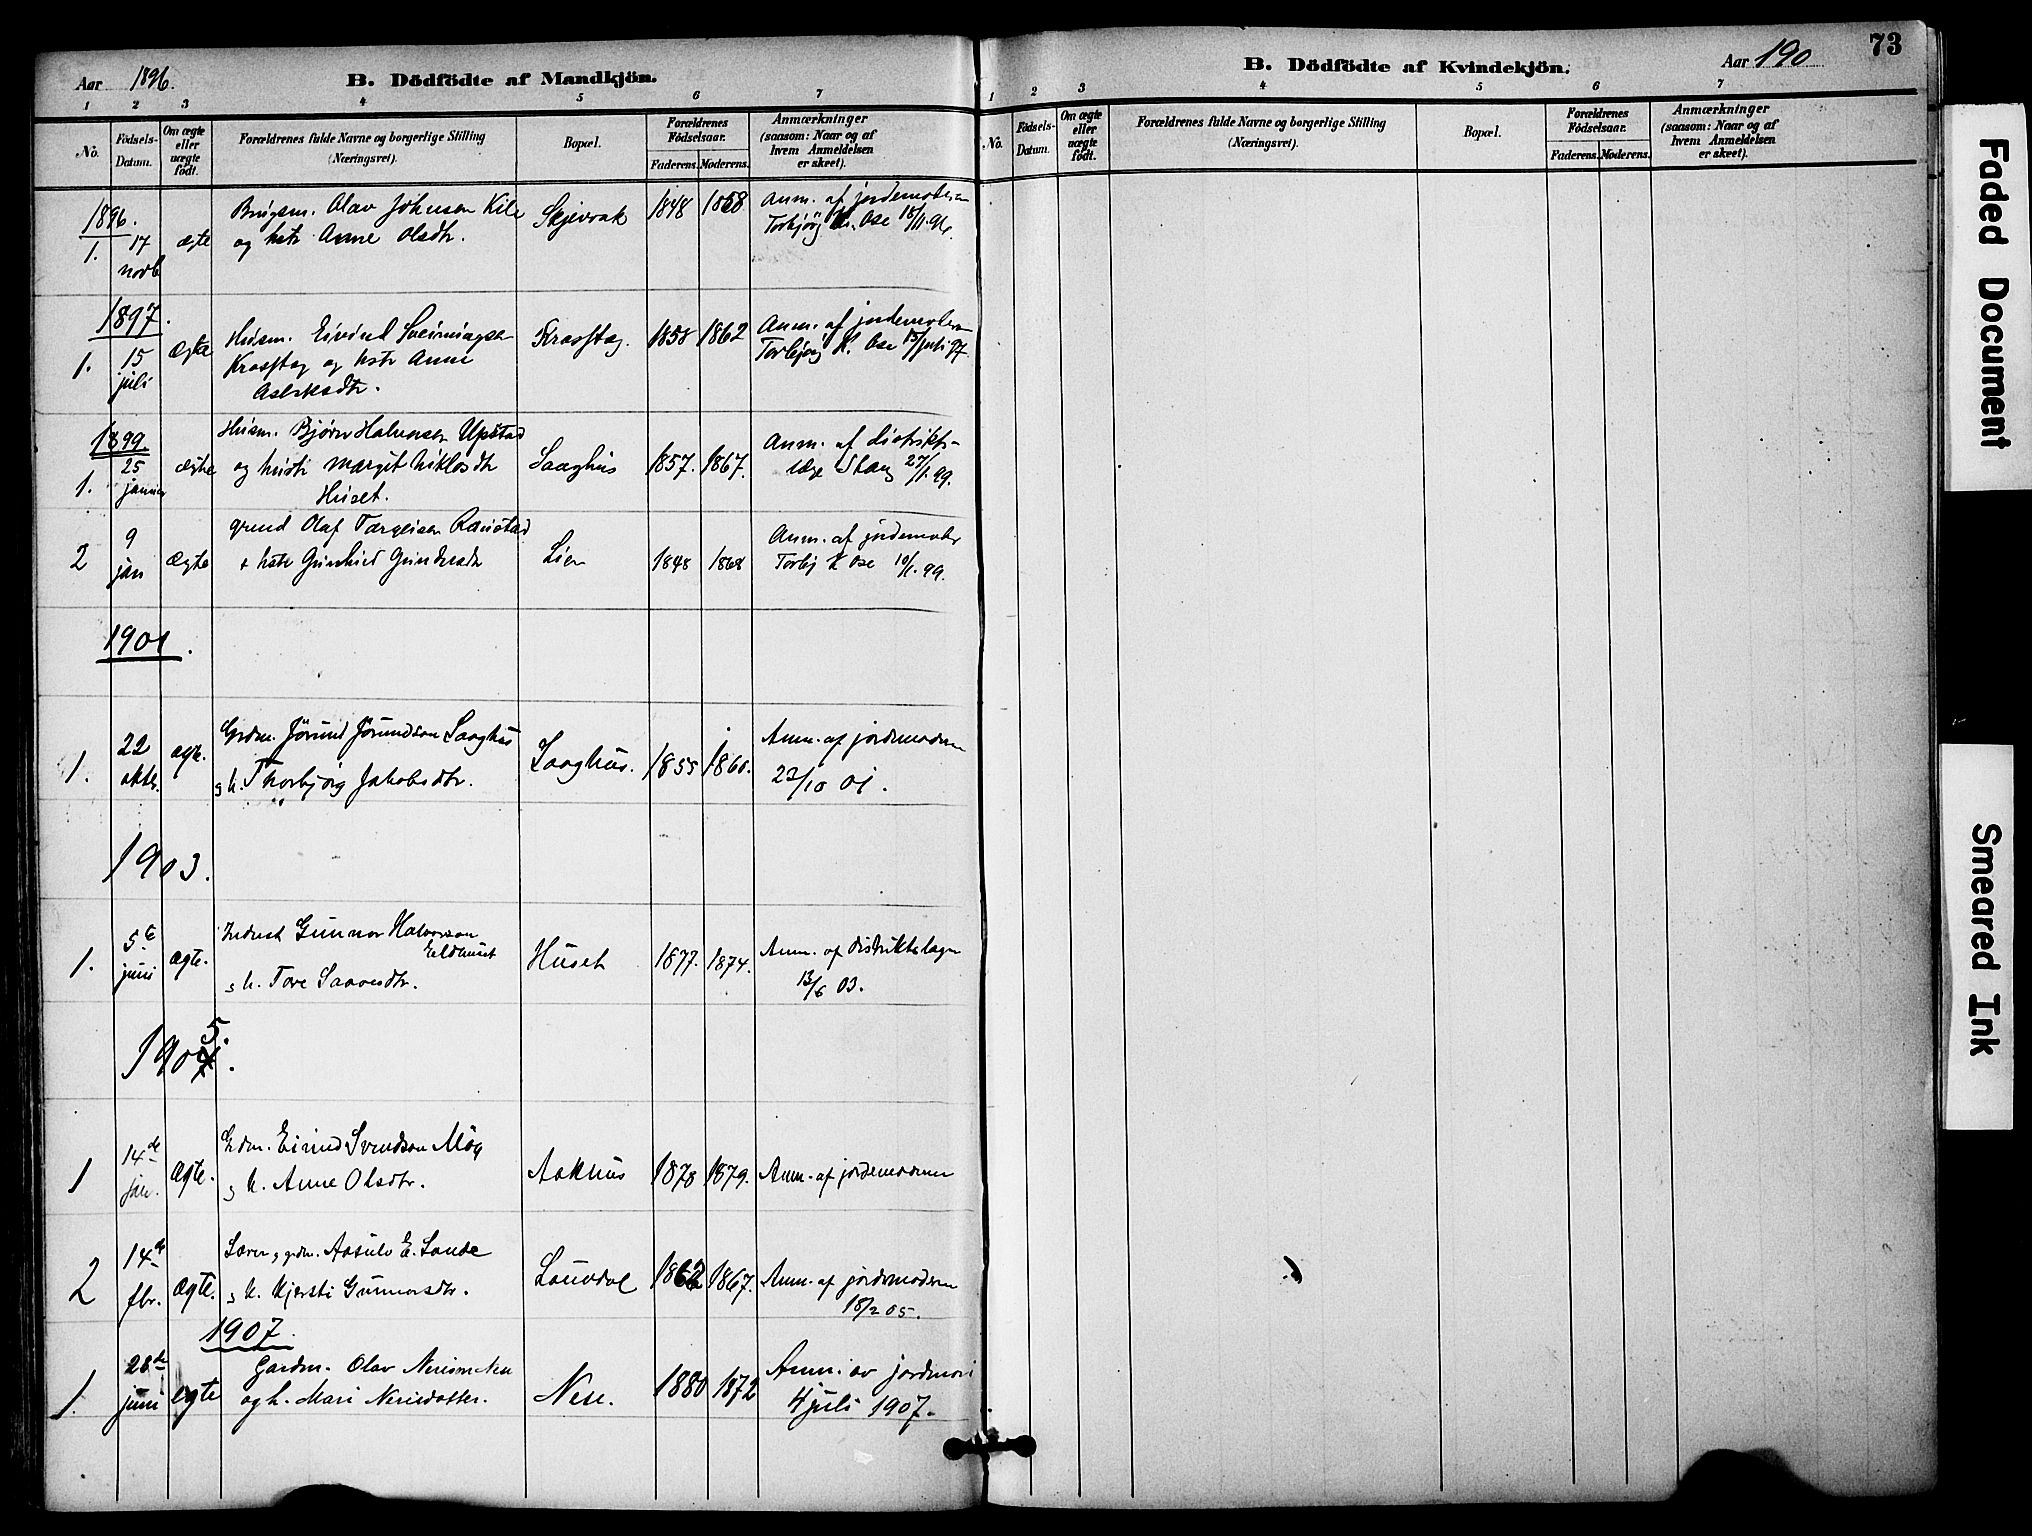 Aar 1896.
B. Dödfödte af Mandkjön.
1 2 3 4 5 6 7
No.
Födsels-Datum.
Om ægte eller uægte födt.
Forældrenes fulde Navne og borgerlige Stilling
(Næringsvei).
Bopæl.
Forældrenes Födselsaar.
Faderens. Moderens.
Anmærkninger
(saasom: Naar og af
hvem Anmeldelsen
er skeet).
1896.
1. 17 novb ægte
Brugsm. Olav Johnsen Kile
og hstr Anne Olsdtr.
Skjevrak 1848 1868
Anm. af jordemoderen
Torbjörg K. Ose 18/11.96.
1897.
1. 15 juli ægte
Husm. Eivind
og hstr Anne
1858 1862
Anm. af jordemoderen
Torbjörg K. Ose 15/juli 97.
1899
1. 25 januar ægte
Husm. Björn Halvorsen Upstad
og hustr Margit Niklosdtr
Huset.
Saaghus 1857. 1867.
Anm. af distrikts-
læge Stang 27/1.99.
2 9 jan ægte
Olaf Targeisen Raustad
+ hstr Gunhild Gundersdtr
Lien 1848 1868
Anm. af jordemoder
Torbj K Ose 10/1.99.
1901.
1. 22 oktbr. ægte.
Grdm. Jörund Jörundson Saaghus
og h. Thorbjörg Jakobsdtr.
Saaghus. 1855 1860.
Anm. af jordmoderen
22/10 01.
1903.
1. 5te juni ægte.
Inderst Gunnar Halvorson
Eldhuset
og h. Tore Saavesdtr.
Huset 1877. 1874.
Anm. af distriktslægen
13/6 03.
1905.
1 14de jan. ægte.
Grdm. Eivind Svendson Mög
og h. Anne Olsdtr.
Aakhus 1878 1879.
Anm. af jordemoderen
2 14de fbr. ægte.
Lærer og grdm. Aasulv E. Lande
og h. Kjersti Gunnarsdtr.
Lauvdal 1862 1867.
Anm. af jordemoderen
18/2 05.
1907.
1. 28de juni egte
Gardm. Olav Nerisson Nese
og h. Mari Nerisdotter.
Nese. 1880 1872
Anm. av jordmori
4 juli 1907.
B. Dödfödte af Kvindekjön.
Aar 190
73
1 2 3 4 5 6 7
No.
Födsels-Datum.
Om ægte eller uægte födt.
Forældrenes fulde Navne og borgerlige Stilling
(Næringsvei).
Bopæl.
Forældrenes Födselsaar.
Faderens. Moderens.
Anmærkninger
(saasom: Naar og af
hvem Anmeldelsen
er skeet).
Faded Document
Smeared Ink